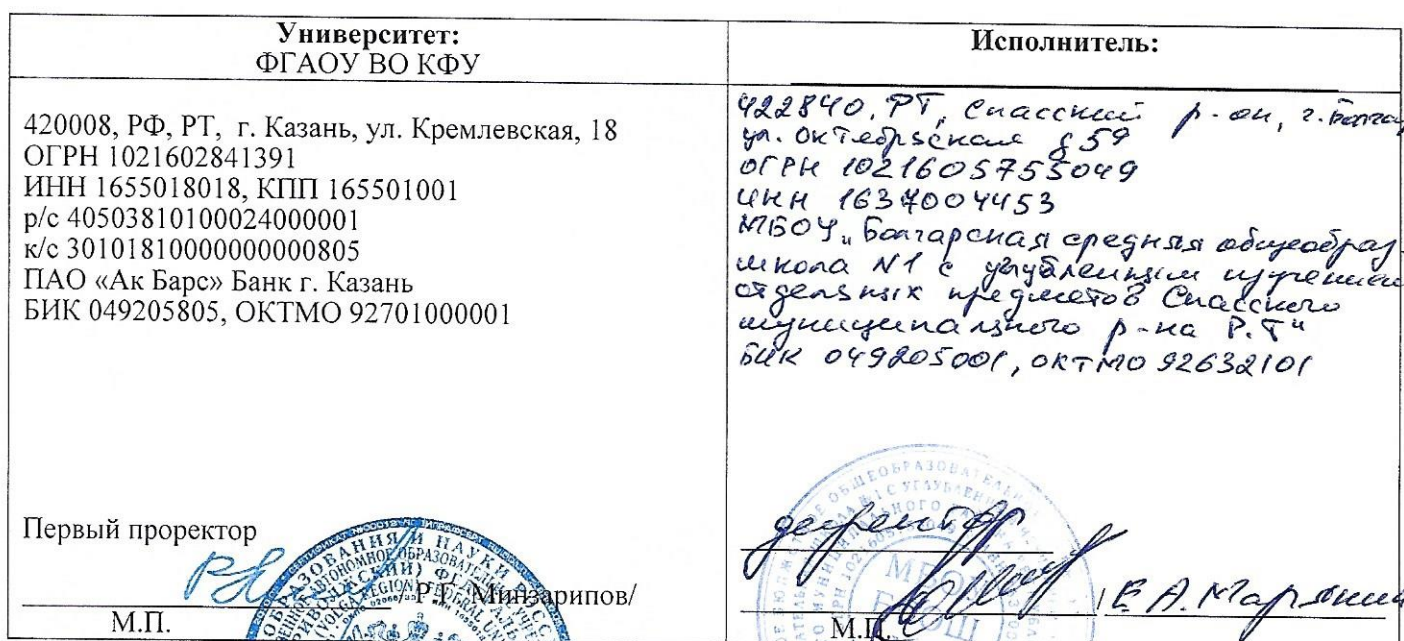 Университет:
ФГАОУ ВО КФУ
420008, РФ, РТ, г. Казань, ул. Кремлевская, 18
ОГРН 1021602841391
ИНН 1655018018, КПП 165501001
р/с 40503810100024000001
к/с 30101810000000000805
ПАО «Ак Барс» Банк г. Казань
БИК 049205805, ОКТМО 92701000001
Первый проректор
Р.Г. Минзарипов/
М.П.
Исполнитель:
422840, РТ, Спасский р-он, г. Болгар
ул. Октябрьская д 59
ОГРН 1021605755049
ИНН 1637004453
МБОУ „Болгарская средняя общеобраз.
школа N1 с углубленным изучением
отдельных предметов Спасского
муниципального р-на Р.Т"
БИК 049205001, ОКТМО 92632101
директор
/Е.А.
М.П.